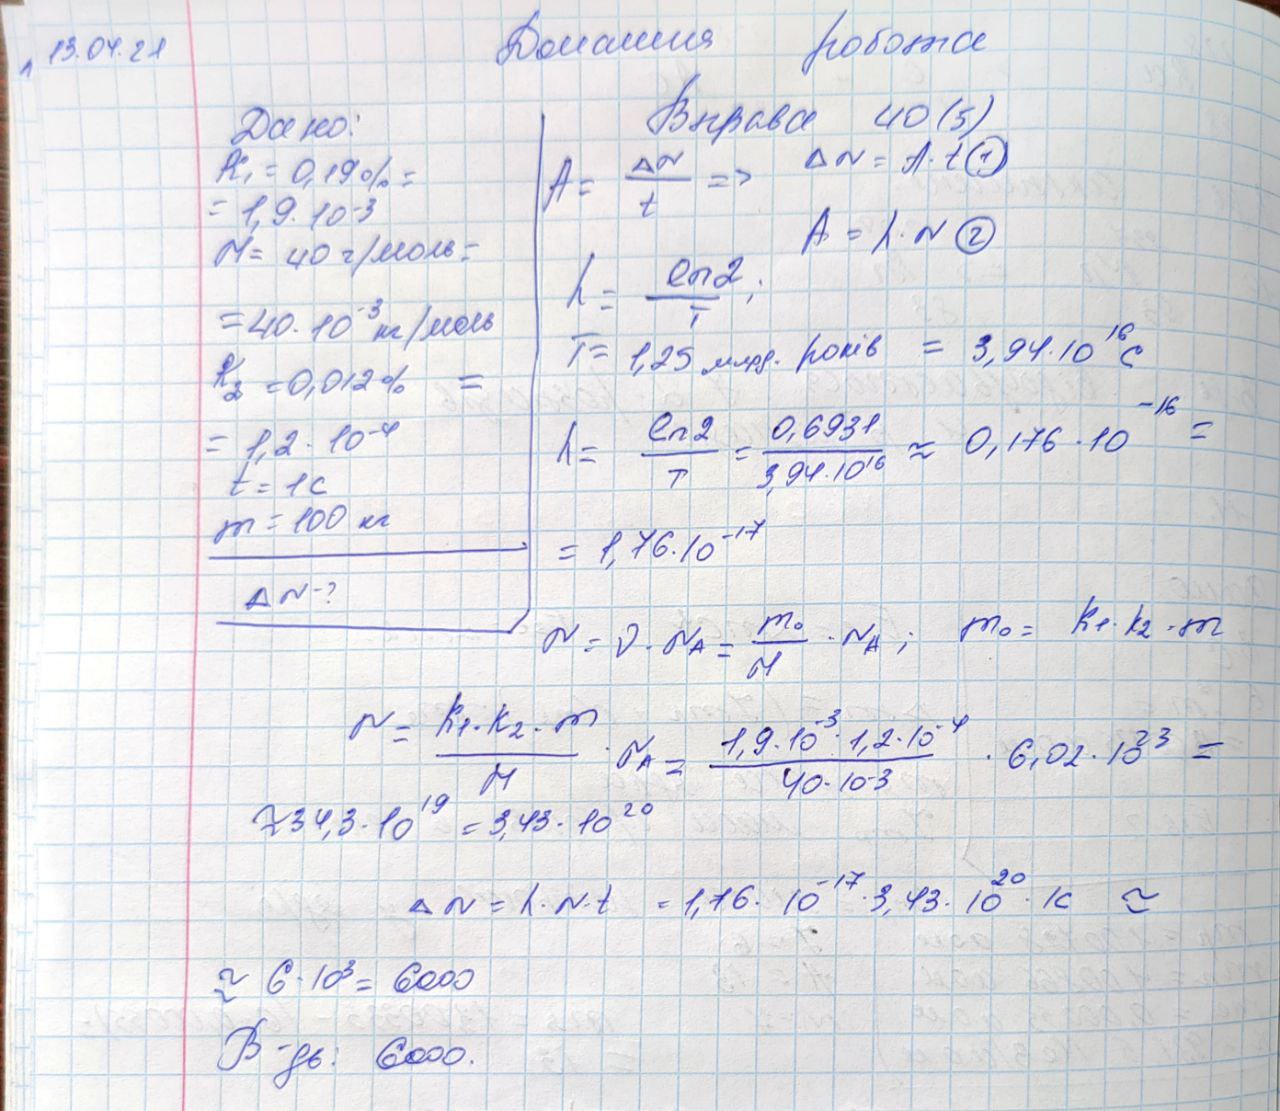 13.04.21
Домашня робота
Вправа 40(5)
Дано:
k₁ = 0,19% =
= 1,9·10⁻³
M = 40 г/моль =
= 40·10⁻³ кг/моль
k₂ = 0,012% =
= 1,2·10⁻⁴
t = 1с
m = 100 кг
ΔN-?
A = ΔN/t => ΔN = A·t ①
A = λ·N ②
λ = ln2/T;
T = 1,25 млрд. років = 3,94·10¹⁶ с
λ = ln2/T = 0,6931/3,94·10¹⁶ ≈ 0,176·10⁻¹⁶ =
= 1,76·10⁻¹⁷
N = ν·N_A = m₀/M · N_A; m₀ = k₁·k₂·m
N = k₁·k₂·m/M · N_A = 1,9·10⁻³·1,2·10⁻⁴/40·10⁻³ · 6,02·10²³ =
≈ 34,3·10¹⁹ = 3,43·10²⁰
ΔN = λ·N·t = 1,76·10⁻¹⁷·3,43·10²⁰·1с ≈
≈ 6·10³ = 6000
В-дь: 6000.